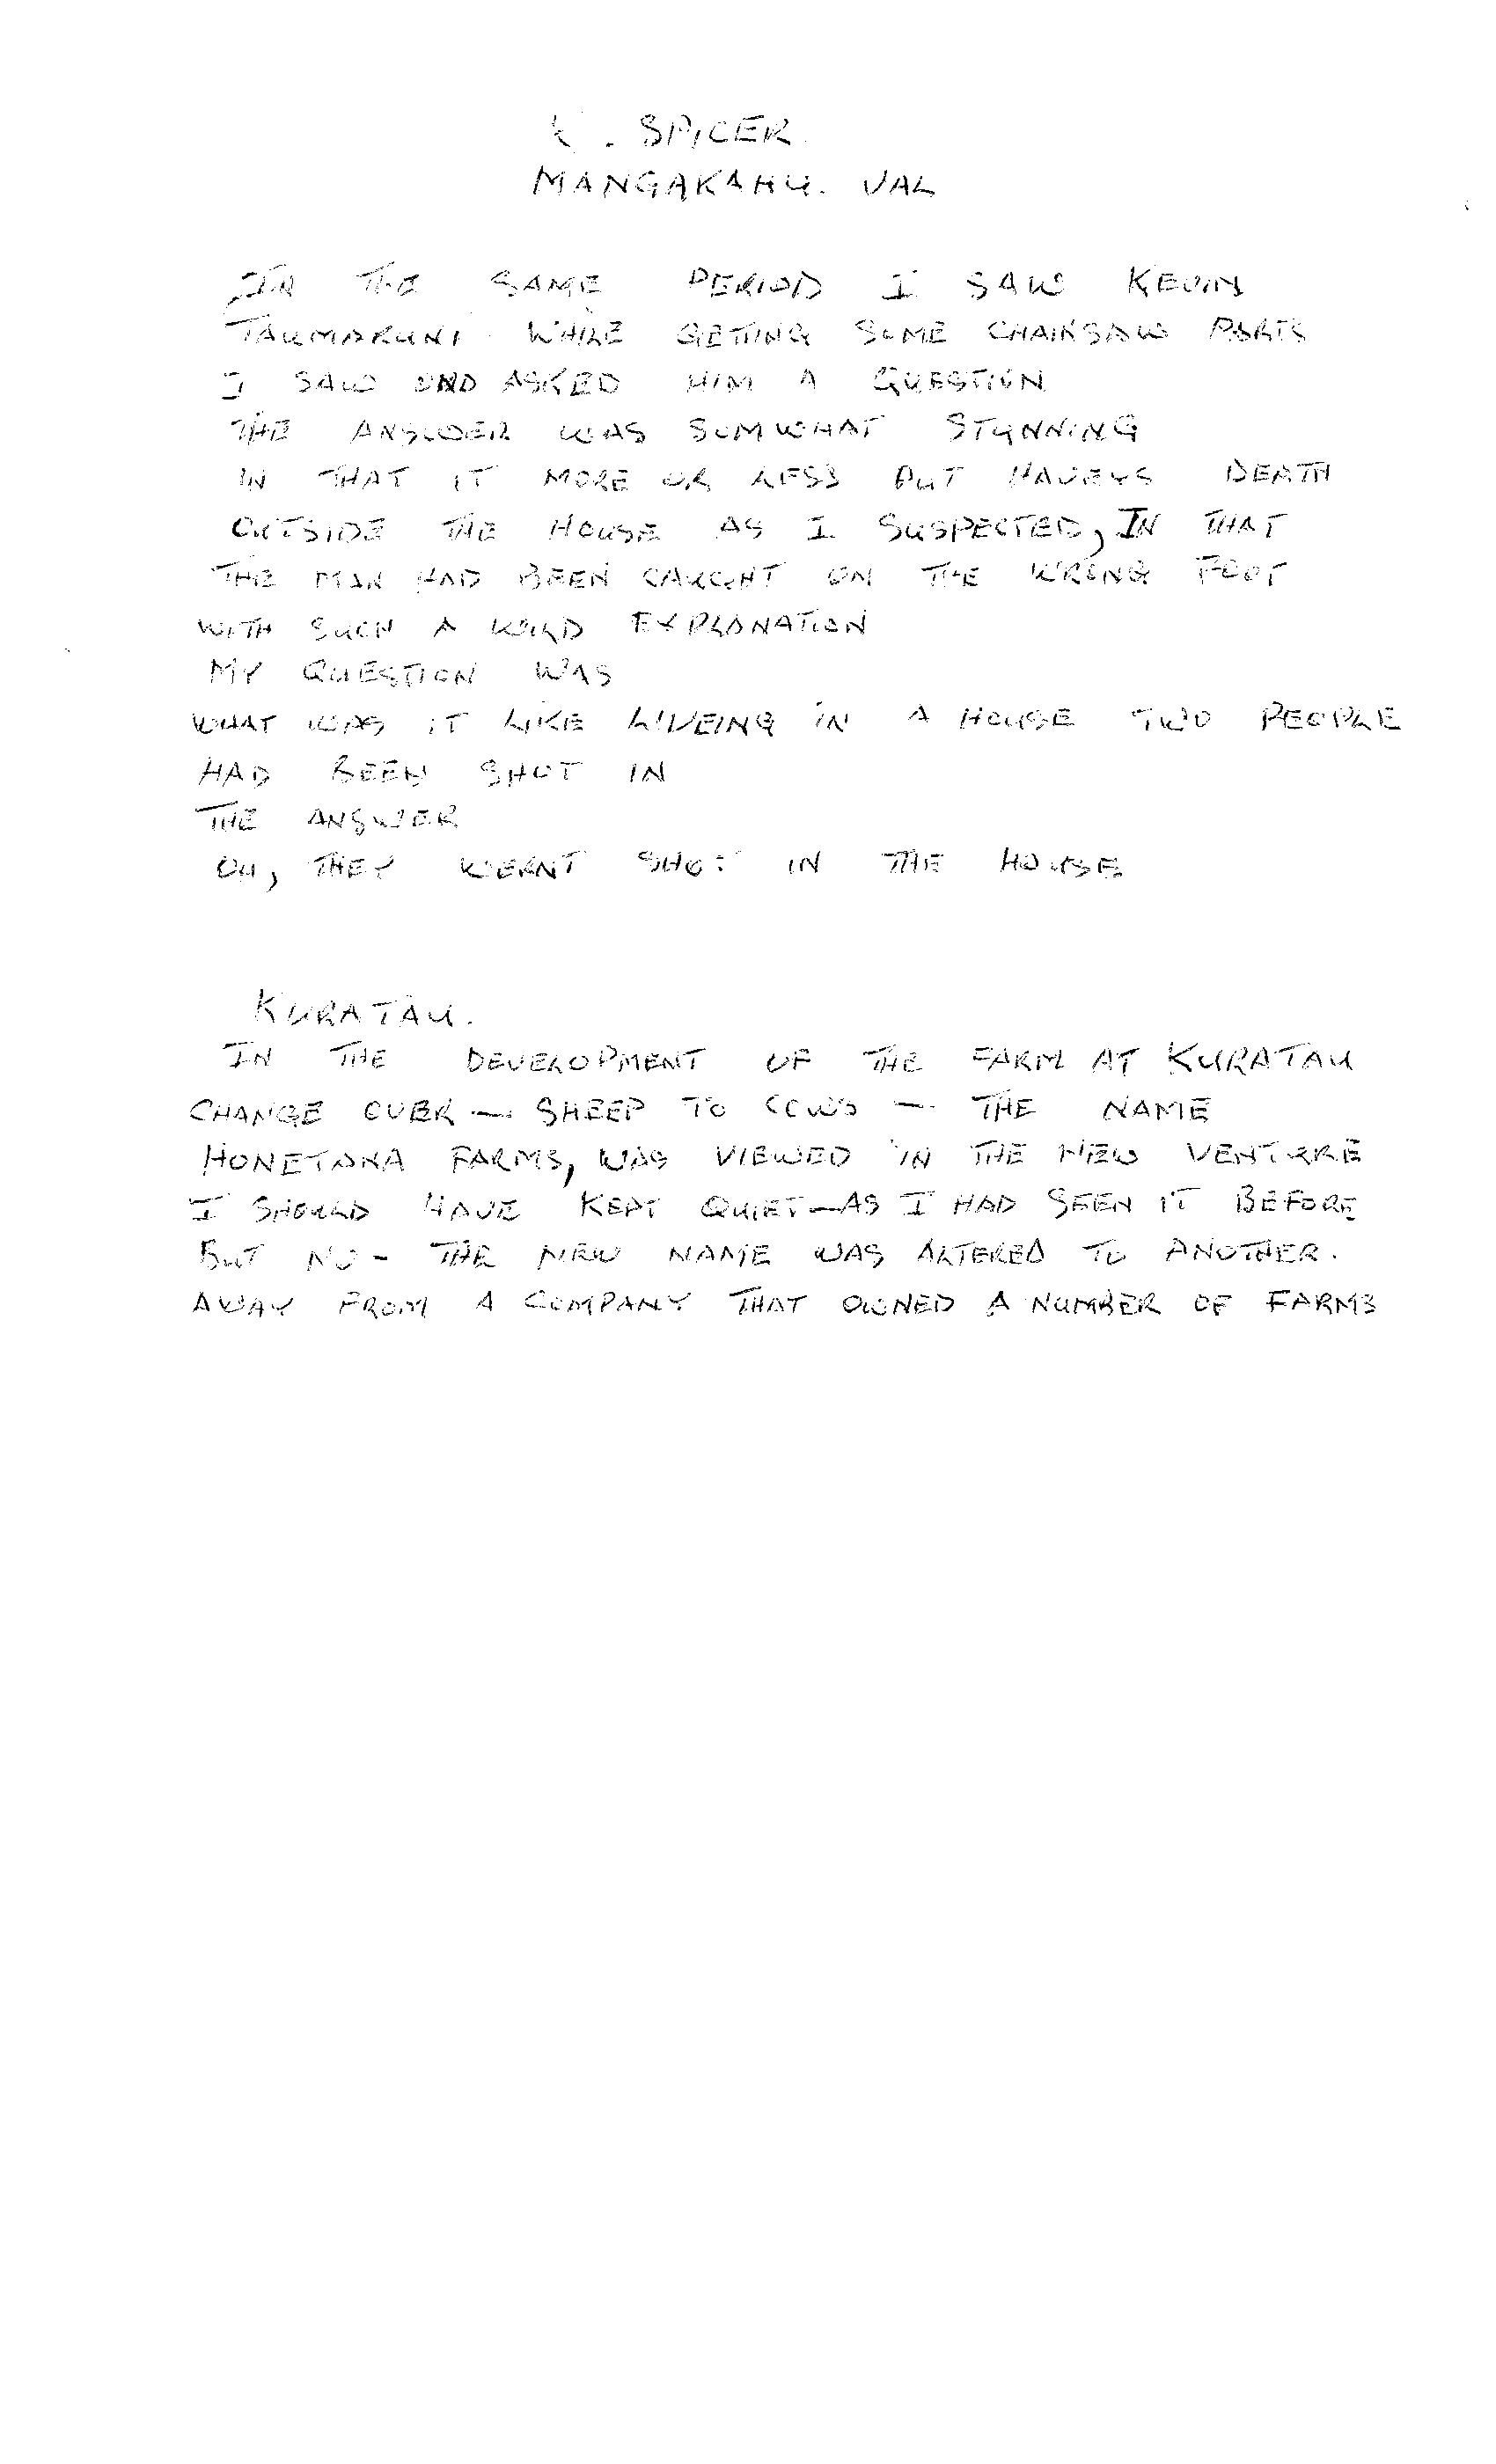 . SPICER.
MANGAKAHU. VAL
IN THE SAME PERIOD I SAW KEVIN
TAUMARUNI WHILE GETTING SOME CHAINSAW PARTS
I SAW AND ASKED HIM A QUESTION
THE ANSWER WAS SOMWHAT STUNNING
IN THAT IT MORE OR LESS PUT HAVEYS DEATH
OUTSIDE THE HOUSE AS I SUSPECTED, IN THAT
THE MAN HAD BEEN CAUGHT ON THE WRONG FOOT
WITH SUCH A WILD EXPLANATION
MY QUESTION WAS
WHAT WAS IT LIKE LIVEING IN A HOUSE TWO PEOPLE
HAD BEEN SHOT IN
THE ANSWER
OH, THEY WERNT SHOT IN THE HOUSE
KURATAU.
IN THE DEVELOPMENT OF THE FARM AT KURATAU
CHANGE OVER — SHEEP TO COWS — THE NAME
HONETANA FARMS, WAS VIEWED IN THE NEW VENTURE
I SHOULD HAVE KEPT QUIET—AS I HAD SEEN IT BEFORE
BUT NO - THE NEW NAME WAS ALTERED TO ANOTHER.
AWAY FROM A COMPANY THAT OWNED A NUMBER OF FARMS